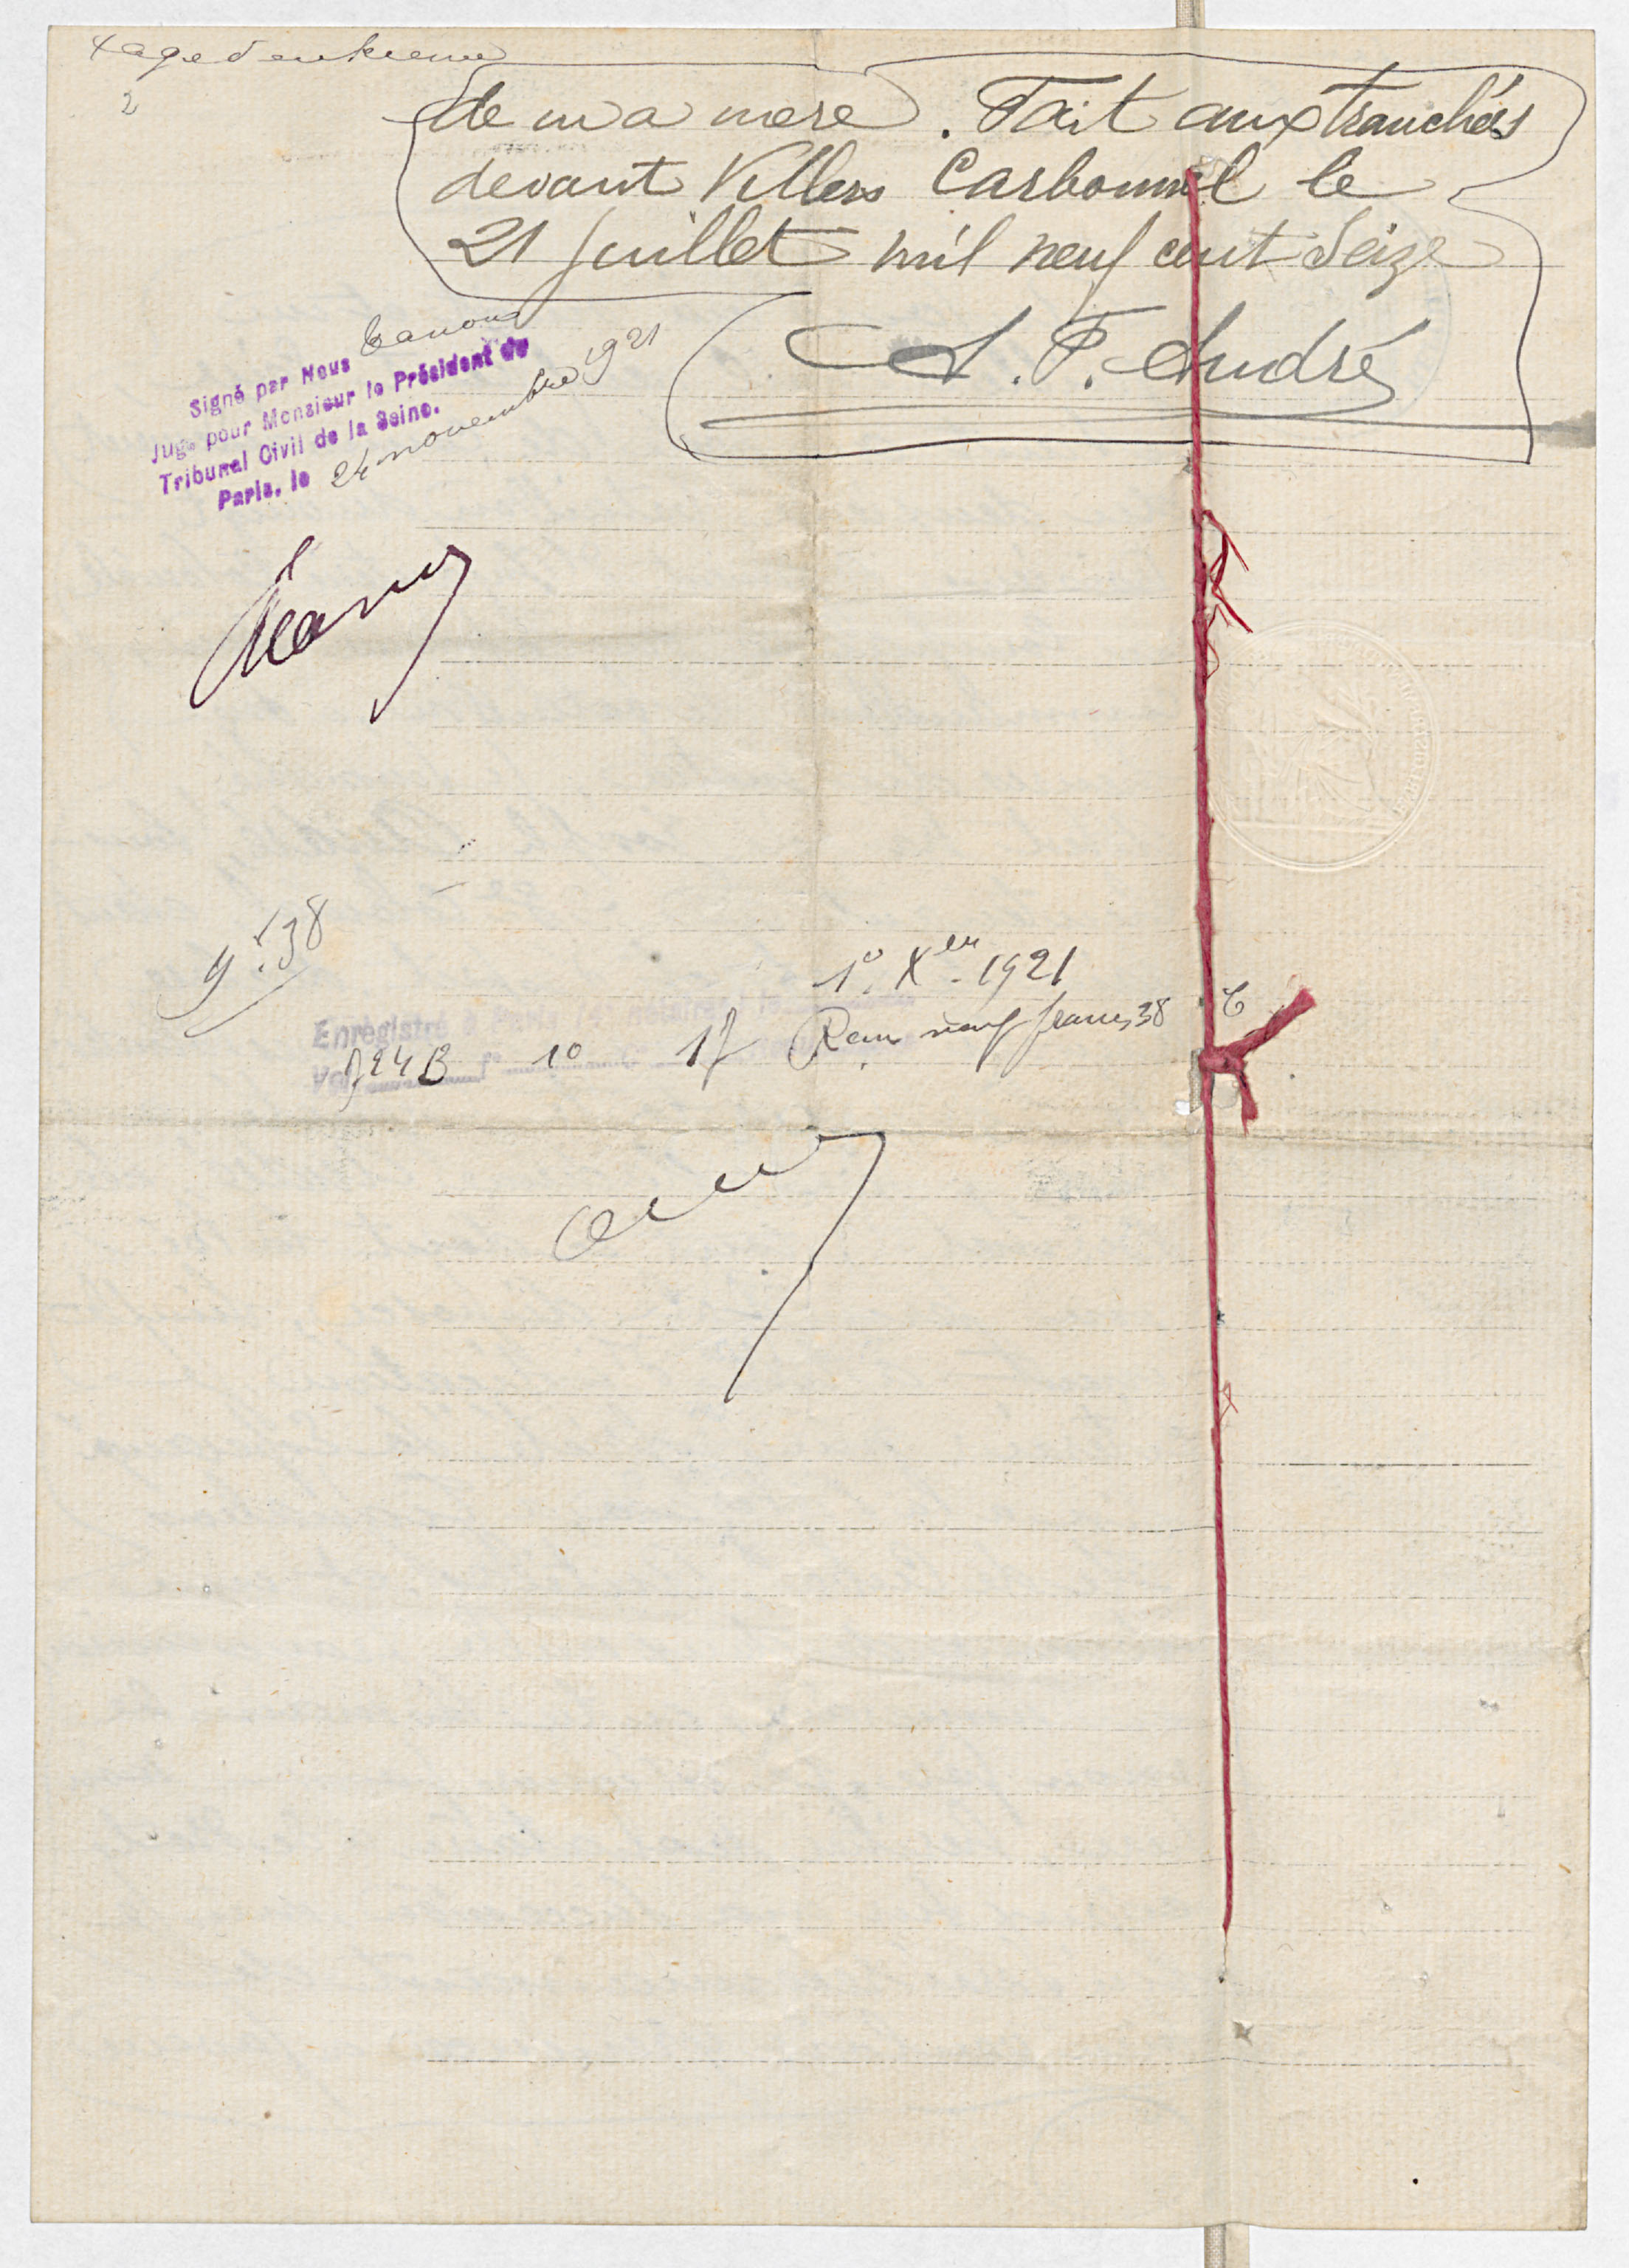 page deuxieme
2
de ma mere. Fait aux tranchés
devant Villers Carbonnel le
21 Juillet mil neuf cent Seize
A. F. André
Signé par Nous
Juge pour Monsieur le Président du
Tribunal Civil de la Seine.
Paris, le 24 novembre 1921
9f.38
1º Xbre 1921
Enregistré à Paris
724 B 10 17 Reçu neuf francs 38 c